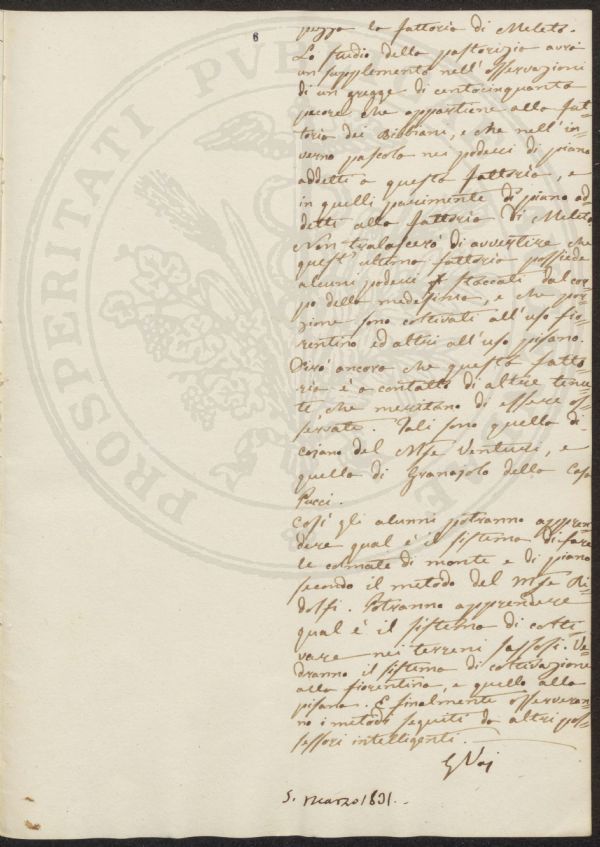 8
pezzo la fattoria di Meleto.
Lo studio della pastorizia avrà
un supplemento nell'osservazioni
di un gregge di centocinquanta
pecore che appartiene alla fat=
toria dei Bibbiani, e che nell'in=
verno pascola nei poderi di piano
addetti a questa fattoria, e
in quelli parimente di piano ad=
detti alla fattoria di Meleto.
Non tralascerò di avvertire che
quest'ultima fattoria possiede
alcuni poderi staccati dal cor=
po della medesima, e che por=
zione sono coltivati all'uso fio=
rentino ed altri all'uso pisano.
Dirò ancora che questa fatto=
ria è a contatto di altre tenu=
te che meritano di essere os=
servate. Tali sono quella di
cojano del Mse Venturi, e
quella di Granajolo della Casa
Pucci.
Così gli alunni potranno appren=
dere qual è il sistema di fare
le colmate di monte e di piano
secondo il metodo del Mse Ri=
dolfi. Potranno apprendere
qual è il sistema di colti=
vare nei terreni sassosi. Ve=
dranno il sistema di coltivazione
alla fiorentina, e quello alla
pisana. E finalmente osserveran=
no i metodi seguiti da altri pos=
sessori intelligenti.
5. Marzo 1831.
PROSPERITATI PVB